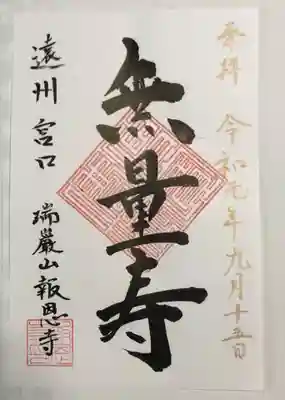 奉拝 令和元年九月十五日
無量寿
遠州宮口 瑞巖山報恩寺